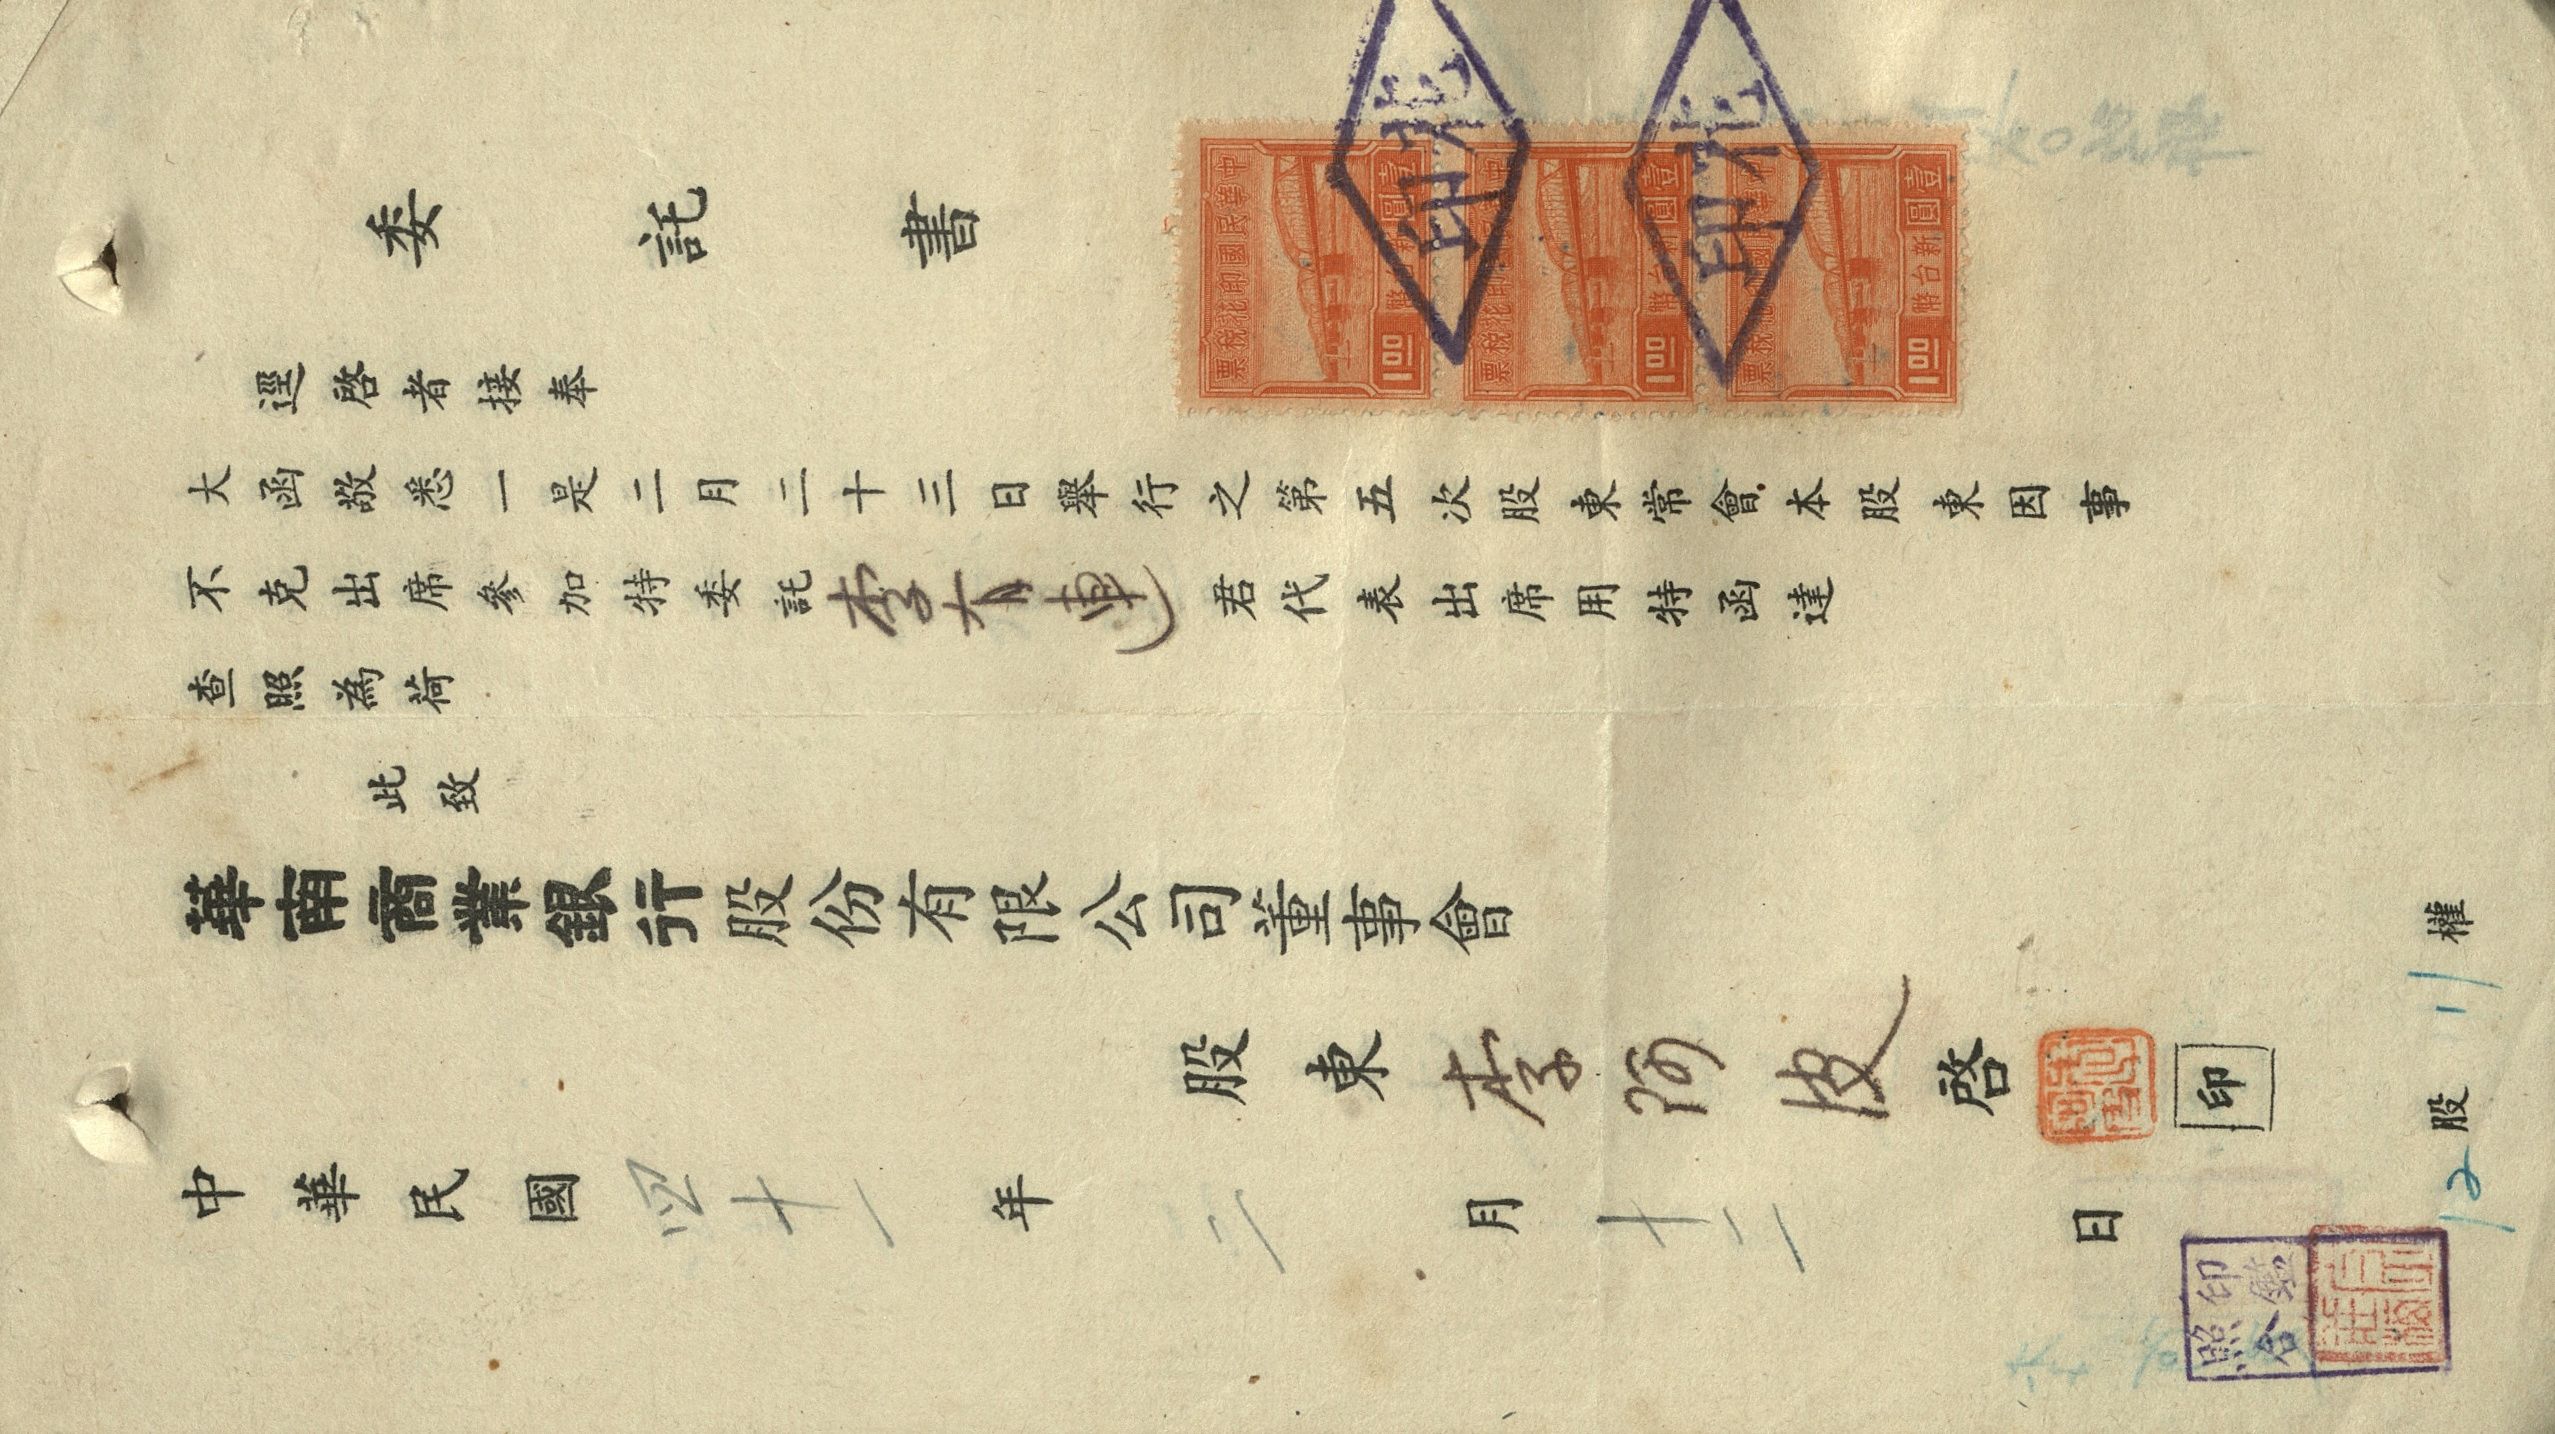 委託書
逕啓者接奉
大函敬悉一是二月二十三日舉行之第五次股東常會本股東因事
不克出席參加特委託李有連君代表出席用特函達
查照為荷
此致
華南商業銀行股份有限公司董事會
股東李阿皮啓
印
中華民國四十一年二月十二日
12股 11權
印鑑
照合
中華民國印花稅票
壹圓
新台幣
1.00
中華民國印花稅票
壹圓
新台幣
1.00
中華民國印花稅票
壹圓
新台幣
1.00
印花
印花